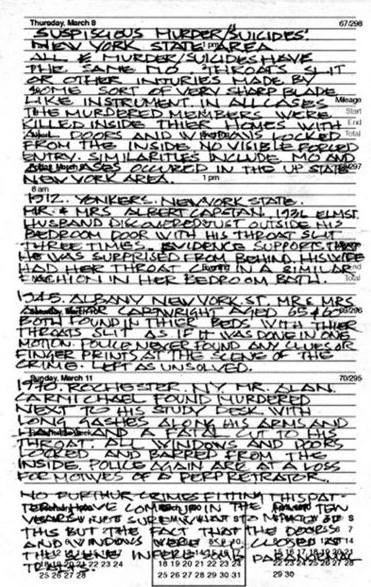 Thursday, March 8 67/298
SUSPISCIOUS MURDER/"SUICIDES"
NEW YORK STATE AREA
ALL 3 MURDER/SUICIDES HAVE
THE SAME MO THROATS SLIT
OR OTHER INJURIES MADE BY
SOME SORT OF VERY SHARP BLADE
LIKE INSTRUMENT. IN ALL CASES Mileage
THE MURDERED MEMBERS WERE Start
KILLED INSIDE THIER HOMES WITH End
DOORS AND WINDOWS LOCKED Total
FROM THE INSIDE. NO VISIBLE FORCED
ENTRY. SIMILARITIES INCLUDE MO AND
CASES OCCURED IN THE UP STATE
NEW YORK AREA. 1 pm
8 am
1912. YONKERS. NEW YORK STATE.
MR. & MRS ALBERT CAPSTAN. ELM ST.
HUSBAND DISCOVERED JUST OUTSIDE HIS
BEDROOM DOOR WITH HIS THROAT SLIT
THREE TIMES. EVIDENCE SUPPORTS THAT
HE WAS SURPRISED FROM BEHIND. HIS WIFE
HAD HER THROAT CUT IN A SIMILAR
FASHION IN HER BEDROOM BATH.
ALBANY NEW YORK ST. MR & MRS
CARTWRIGHT AGED 65 & 63
BOTH FOUND IN THIER BEDS WITH THIER
THROATS SLIT AS IF IT WAS DONE IN ONE
MOTION. POLICE NEVER FOUND ANY CLUES OR
FINGER PRINTS AT THE SCENE OF THE
CRIME. LEFT AS UNSOLVED.
Sunday, March 11 70/295
1970 ROCHESTER. NY MR. ALAN.
CARMICHAEL FOUND MURDERED
NEXT TO HIS STUDY DESK WITH
LONG GASHES ALONG HIS ARMS AND
AND A FATAL CUT TO HIS
THROAT. ALL WINDOWS AND DOORS
LOCKED, AND BARRED FROM THE
INSIDE. POLICE AGAIN ARE AT A LOSS
FOR MOTIVES OF A PERPRETRATOR.
NO FURTHUR CRIMES FITTING THIS PAT-
HAVE COME IN THE TEN
YEARS. NOT SURE WHAT TO
THIS BUT THE FACT THAT THE DOORS
AND WINDOWS WERE CLOSED AT
THE SCENE
18 19 20 21 22 23 24
25 26 27 28 25 26 27 28 29 30 31 29 30